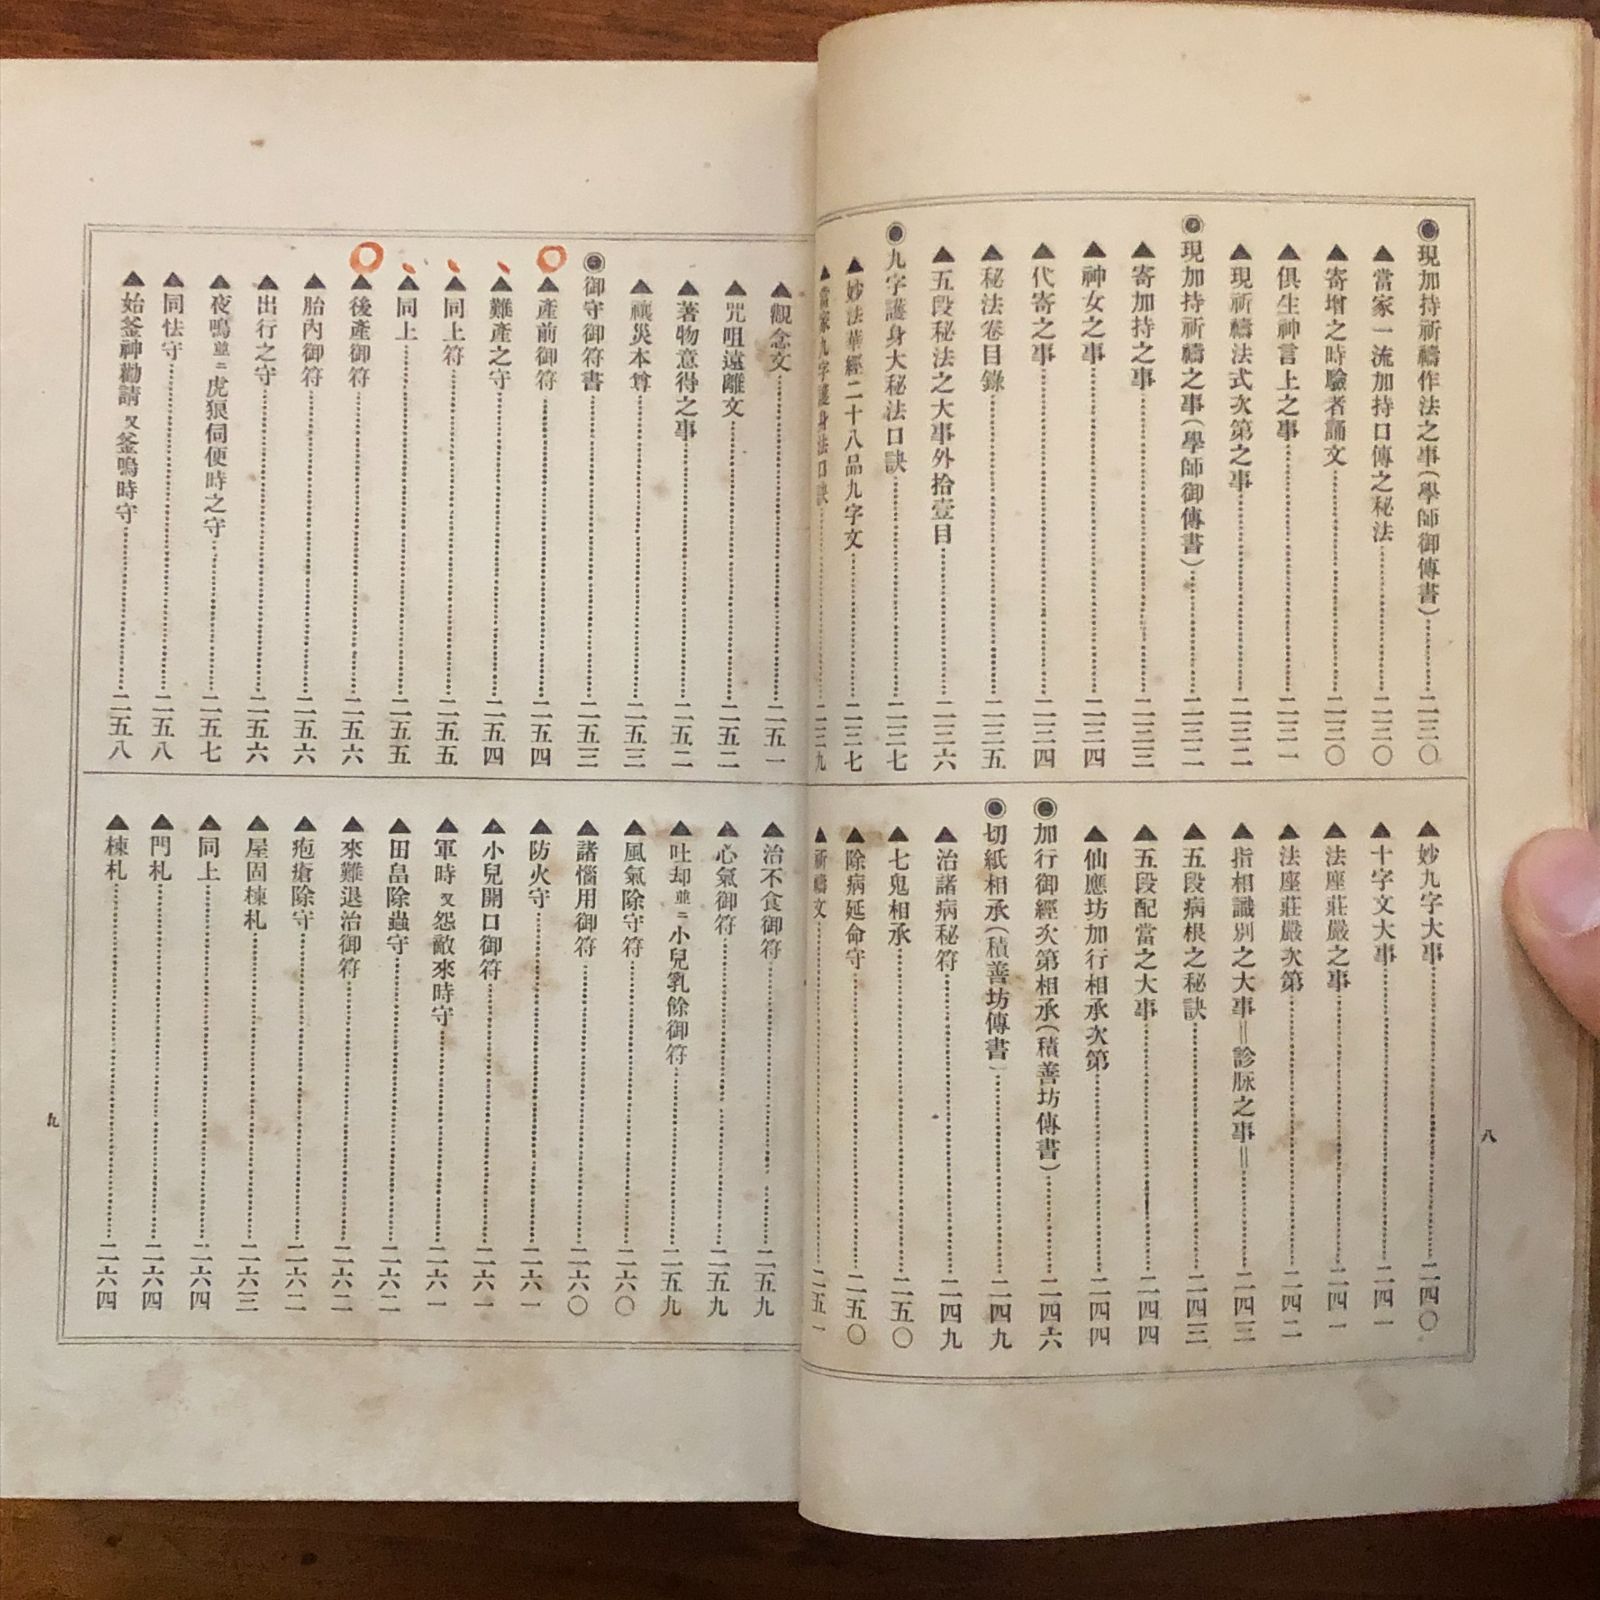 ◉現加持祈禱作法之事(學師御傳書)……二三〇
▲當家一流加持口傳之秘法……二三〇
▲寄增之時驗者誦文……二三〇
▲俱生神言上之事……二三一
▲現祈禱法式次第之事……二三二
◉現加持祈禱之事(學師御傳書)……二三二
▲寄加持之事……二三三
▲神女之事……二三四
▲代寄之事……二三四
▲秘法卷目錄……二三五
▲五段秘法之大事外拾壹目……二三六
◉九字護身大秘法口訣……二三七
▲妙法華經二十八品九字文……二三七
▲當家九字護身法口訣……二三九
▲妙九字大事……二四〇
▲十字文大事……二四一
▲法座莊嚴之事……二四一
▲法座莊嚴次第……二四二
▲指相識別之大事=診脉之事=……二四三
▲五段病根之秘訣……二四三
▲五段配當之大事……二四四
▲仙應坊加行相承次第……二四四
◉加行御經次第相承(積善坊傳書)……二四六
◉切紙相承(積善坊傳書)……二四九
▲治諸病秘符……二四九
▲七鬼相承……二五〇
▲除病延命守……二五〇
▲祈禱文……二五一
八
▲觀念文……二五一
▲咒咀遠離文……二五二
▲著物意得之事……二五二
▲禳災本尊……二五三
◉御守御符書……二五三
▲產前御符……二五四
▲難產之守……二五四
▲同上符……二五五
▲同上……二五五
▲後產御符……二五六
▲胎內御符……二五六
▲出行之守……二五六
▲夜鳴並ニ虎狼伺便時之守……二五七
▲同怯守……二五八
▲始釜神勸請又釜鳴時守……二五八
▲治不食御符……二五九
▲心氣御符……二五九
▲吐却並ニ小兒乳餘御符……二五九
▲風氣除守符……二六〇
▲諸惱用御符……二六〇
▲防火守……二六一
▲小兒開口御符……二六一
▲軍時又怨敵來時守……二六一
▲田畠除蟲守……二六二
▲來難退治御符……二六二
▲疱瘡除守……二六二
▲屋固棟札……二六三
▲同上……二六四
▲門札……二六四
▲棟札……二六四
九